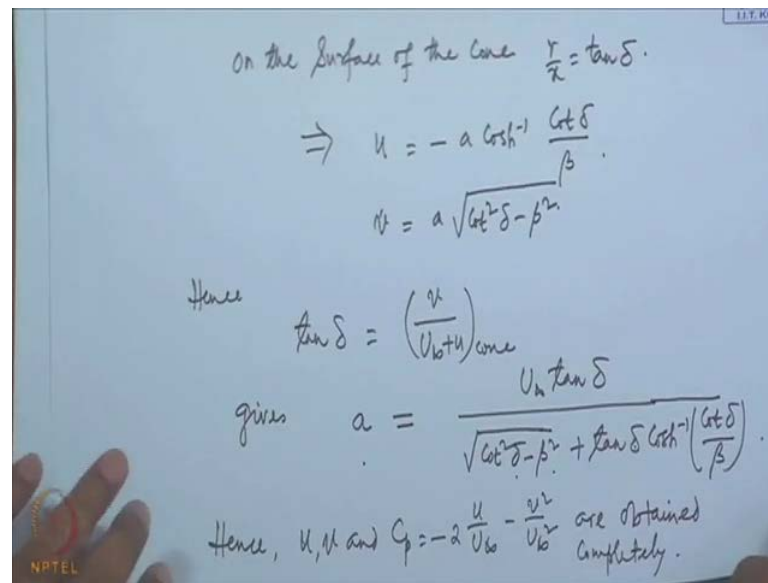 I.I.T. K
on the Surface of the Cone r/x = tan δ.
⇒ u = - a Cosh⁻¹ Cot δ/β .
v = a √(Cot² δ - β²).
Hence
tan δ = (v/(U∞+u))cone
gives a = U∞ tan δ / (√(Cot² δ - β²) + tan δ Cosh⁻¹(Cot δ/β)) .
Hence, u, v and Cp = -2 u/U∞ - v²/U∞² are obtained
Completely.
NPTEL